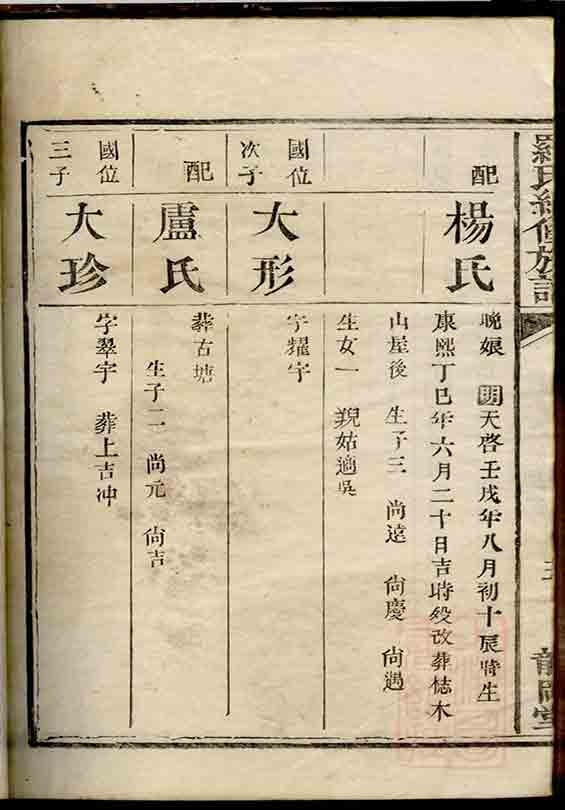 羅氏續修族譜
配
楊氏
晚娘 明天啓壬戌年八月初十辰時生
康熙丁巳年六月二十日吉時歿改葬梽木
山屋後 生子三 尚遠 尚慶 尚遇
生女一 親姑適吳
國位
次子
大形
字耀宇
配
盧氏
葬古塘
生子二 尚元 尚吉
國位
三子
大珍
字翠宇 葬上吉冲